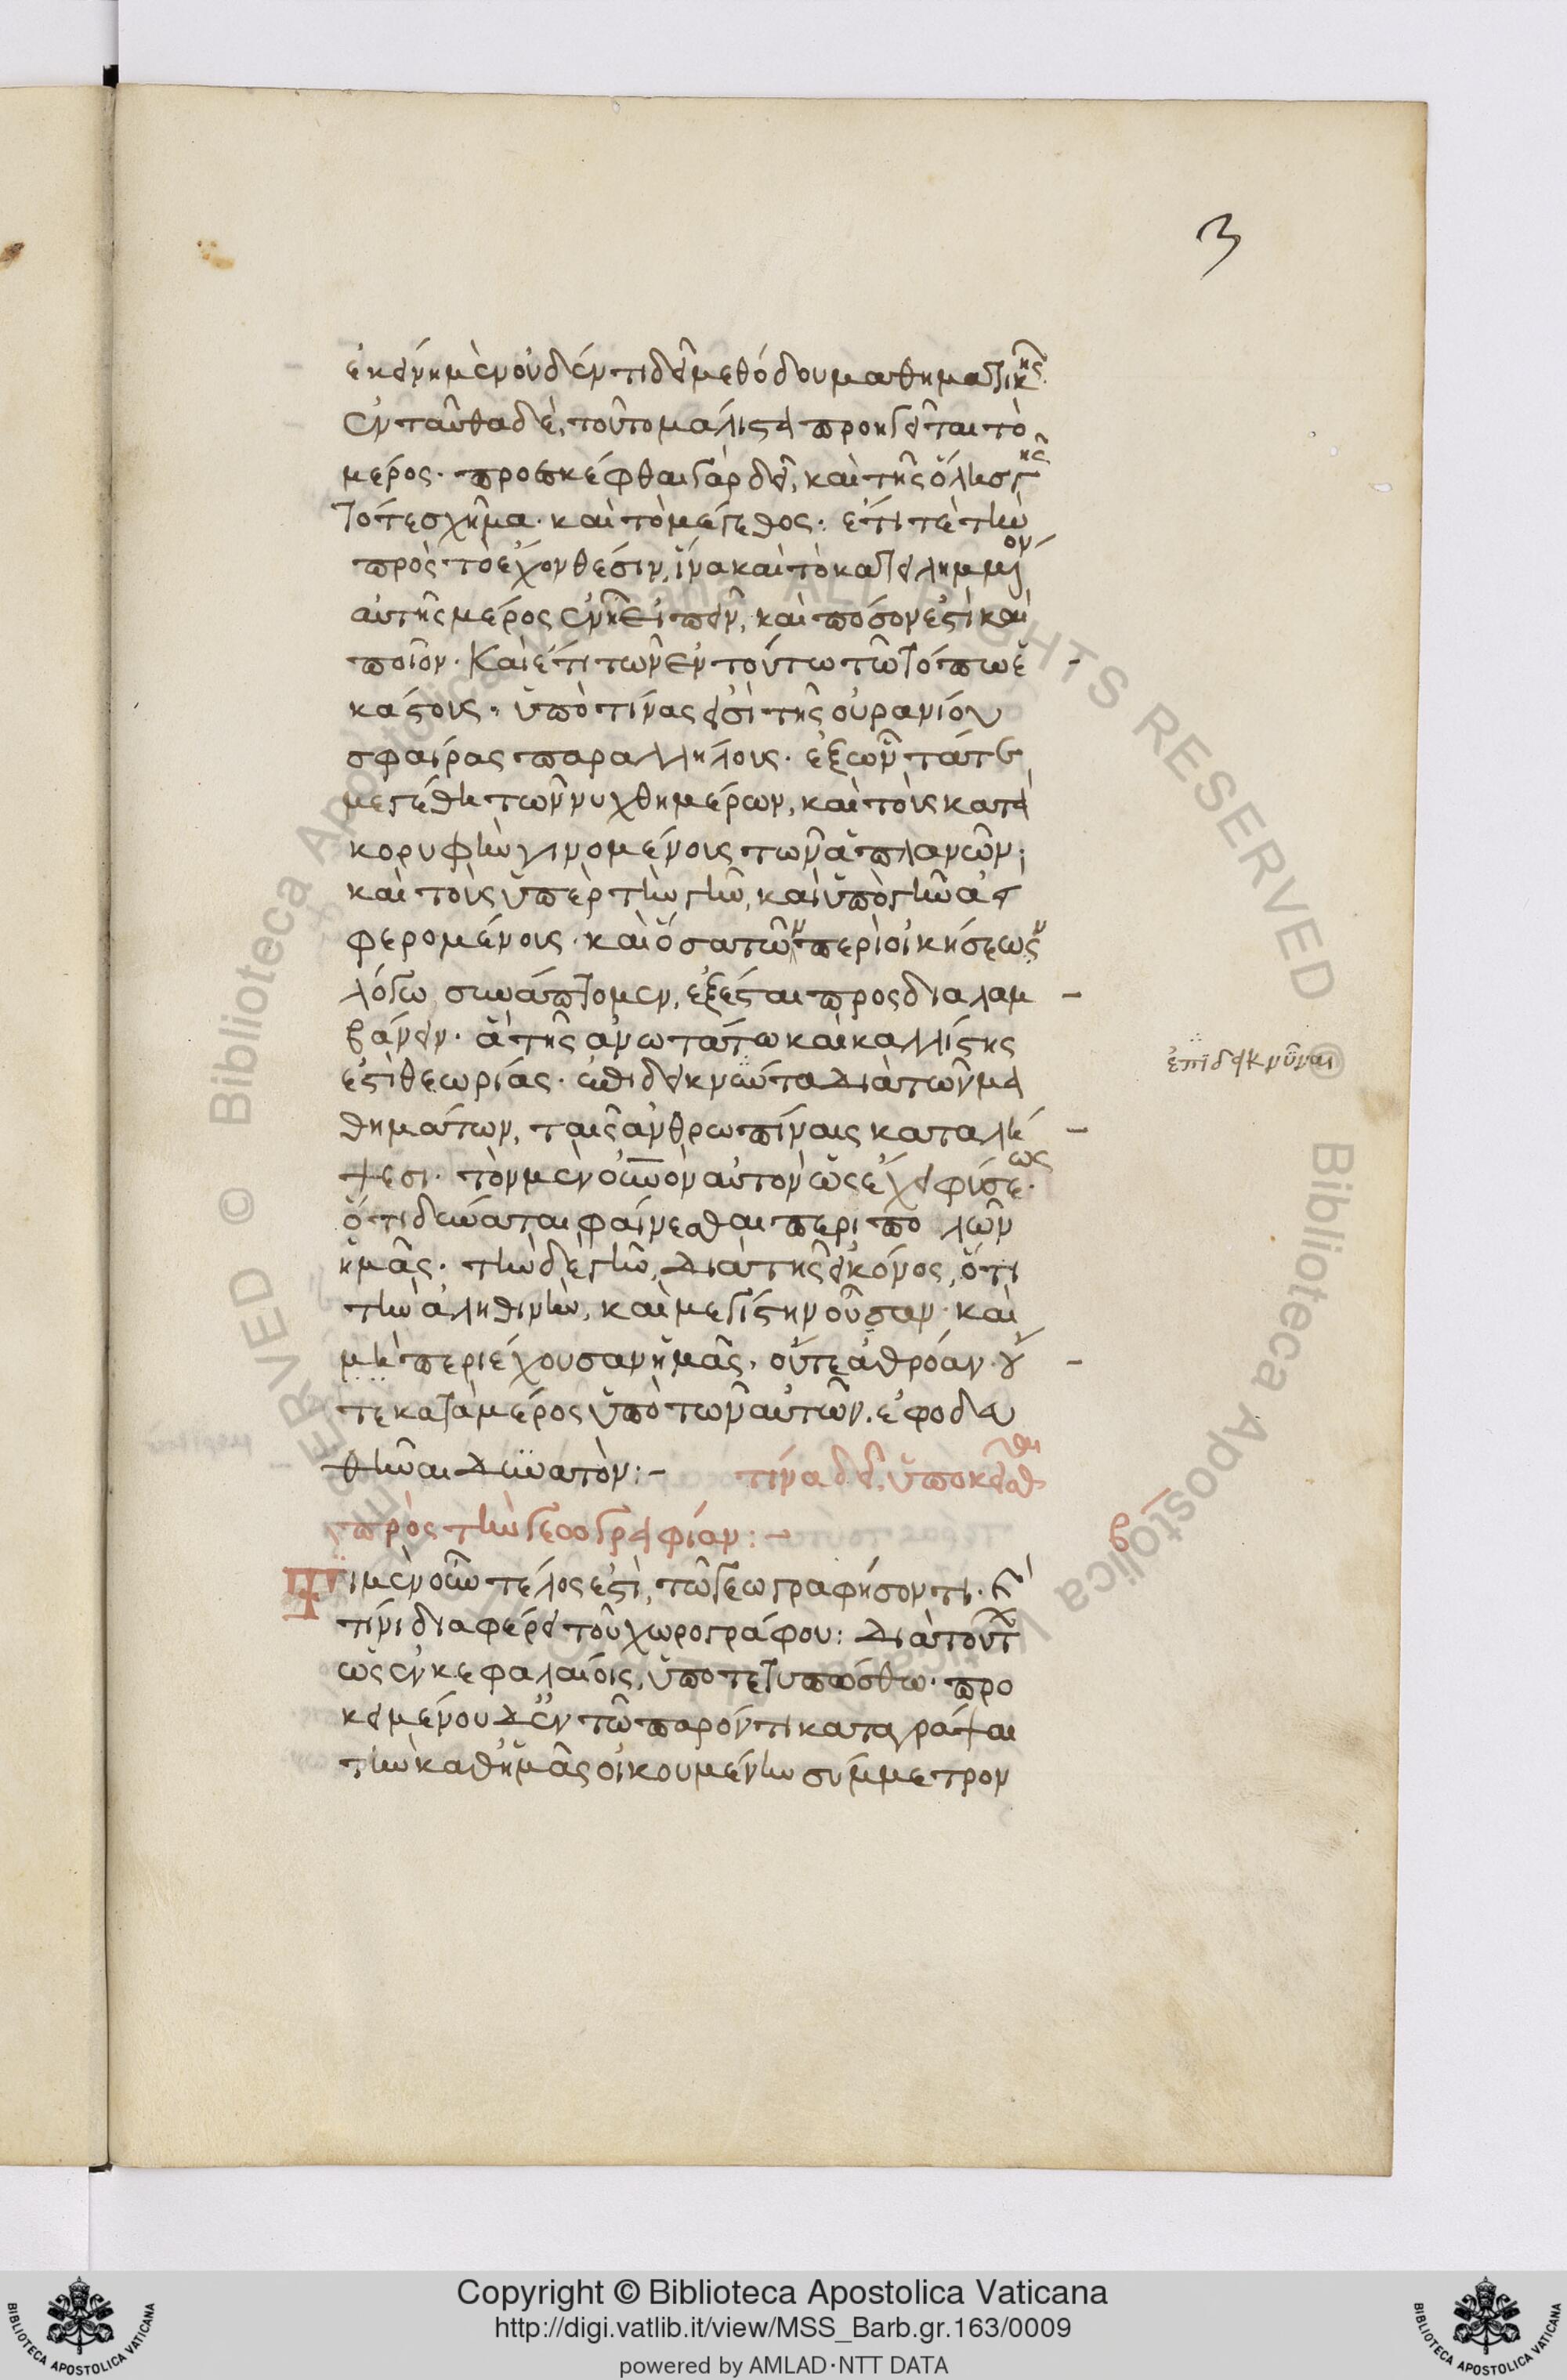 3
ἐκείνη μὲν οὐδέν τι δεῖ μεθόδου μαθηματικῆς.
ἐνταῦθα δὲ, τοῦτο μάλιστα προηγεῖται τὸ
μέρος. προεσκέφθαι γὰρ δεῖ, καὶ τῆς ὅλης γῆς
τό τε σχῆμα. καὶ τὸ μέγεθος. ἔτι τὲ τὴν
πρὸς τὸ ἔχον θέσιν, ἵνα καὶ τὸ κατειλημμένον
αὐτῆς μέρος ἐνῇ εἰπεῖν, καὶ πόσον ἐστὶ καὶ
ποῖον. Καὶ ἔτι τῶν ἐν τούτω τῶ τόπω ἑ
κάστοις. ὑπὸ τίνας εἰσὶ τῆς οὐρανίου
σφαίρας παραλλήλους. ἐξ ὧν τάτε
μεγέθη τῶν νυχθημέρων, καὶ τοὺς κατὰ
κορυφὴν γινομένους τῶν ἀπλανῶν;
καὶ τοὺς ὑπὲρ τὴν γῆν, καὶ ὑπὸ γῆν ἀεὶ
φερομένους. καὶ ὅσα τῶν περὶ οἰκήσεως
λόγω συνάπτομεν, ἐξέσται προσδιαλαμ
βάνειν. ἃ τῆς ἀνωτάτω καὶ καλλίστης
ἐστὶ θεωρίας. ἐπιδεικνῦντα διὰ τῶν μα
θημάτων, ταῖς ἀνθρωπίναις καταλή
ψεσι. τὸν μὲν οὐνὸν αὐτὸν ὡς ἔχει φύσεως.
ὅτι δύναται φαίνεσθαι περιπολῶν
ἡμᾶς. τὴν δὲ γῆν, διὰ τῆς εἰκόνος, ὅτι
τὴν ἀληθινὴν, καὶ μεγίστην οὖσαν. καὶ
μὴ περιέχουσαν ἡμᾶς, οὔτε ἀθρόαν. οὔ
τε κατὰ μέρος ὑπὸ τῶν αὐτῶν. ἐφοδευ
θῆναι δυνατὸν:- τίνα δεῖ, ὑποκεῖσθαι
πρὸς τὴν γεωγραφίαν:-
Τί μὲν οὖν τέλος ἐστὶ, τῶ γεωγραφήσοντι. καὶ
τίνι διαφέρει τοῦ χωρογράφου: διὰ τούτων
ὡς ἐν κεφαλαίοις, ὑποτετυπώσθω. προ
κειμένου δ' ἐν τῶ παρόντι καταγράψαι
τὴν καθ' ἡμᾶς οἰκουμένην σύμμετρον
ἐπιδεικνῦναι
β
Copyright © Biblioteca Apostolica Vaticana
http://digi.vatlib.it/view/MSS_Barb.gr.163/0009
powered by AMLAD·NTT DATA
BIBLIOTECA APOSTOLICA VATICANA
BIBLIOTECA APOSTOLICA VATICANA